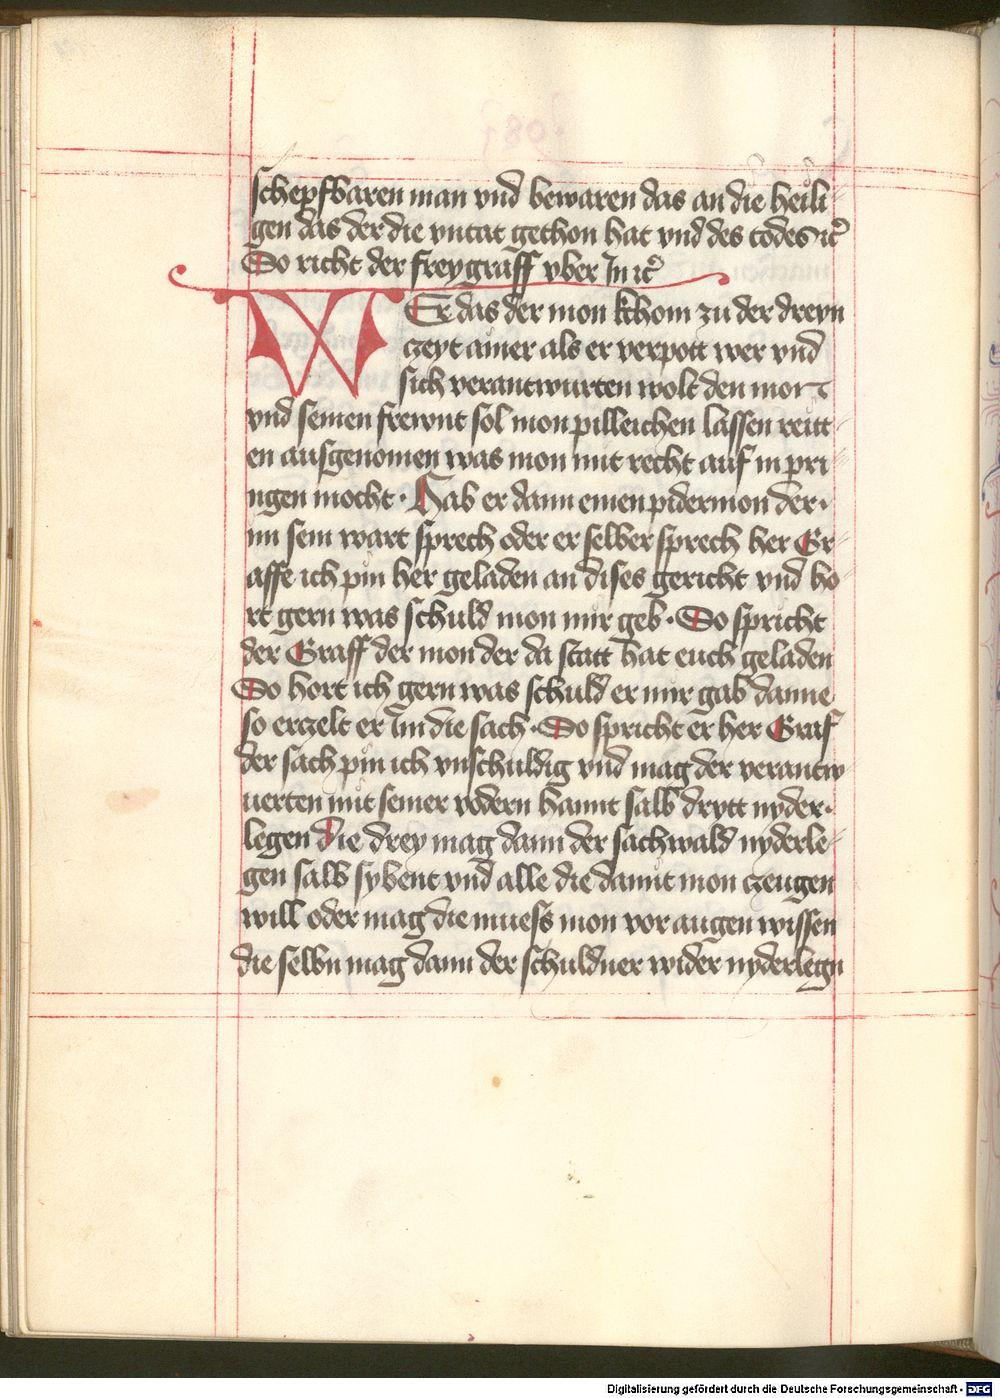 schepfbaren man vnd bewaren das an die heili-
gen das der die vntat gethon hat vnd des todes ꝛc̄
So richt der freygraff vber In ꝛc̄
WEr das der mon kchom zu der dreyn
czeyt ainer als er verpott wer vnd
sich verantwurten wolt den mon
vnd seinen frewnt sol mon pilleichen lassen reitt-
en ausgenomen was mon mit recht auf in pri-
ngen mocht · Hab er dann einen pidermon der·
im sein wart sprech oder er selber sprech her Gr-
affe ich pin her geladen an dises gericht vnd ho-
rt gern was schuld mon mir geb · So spricht
der Graff der mon der da statt hat euch geladen
So hort ich gern was schuld er mir gab danne
so erczelt er Im die sach · So spricht er her Graf
der sach pin ich vnschuldig vnd mag der verantw
uerten mit seiner vodern hannt salb drytt nyder·
legen die drey mag dann der sachwald nyderle-
gen salb sybent vnd alle die damit mon czeugen
will oder mag die muess mon vor augen wissen
die selbn mag dann der schuldner wider nyderlegn
Digitalisierung gefördert durch die Deutsche Forschungsgemeinschaft - DFG